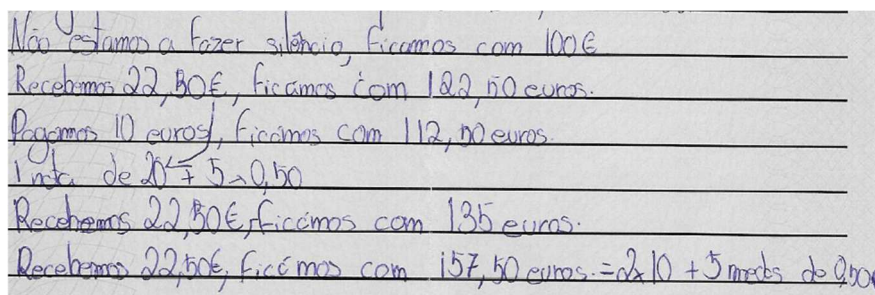 Não estamos a fazer silêncio, ficamos com 100€
Recebemos 22,50€, ficámos com 122,50 euros.
Pagamos 10 euros, ficámos com 112,50 euros.
1 nota de 20 + 5 x 0,50
Recebemos 22,50€, ficámos com 135 euros.
Recebemos 22,50€, ficámos com 157,50 euros. = 2x10 + 5 moedas de 0,50€